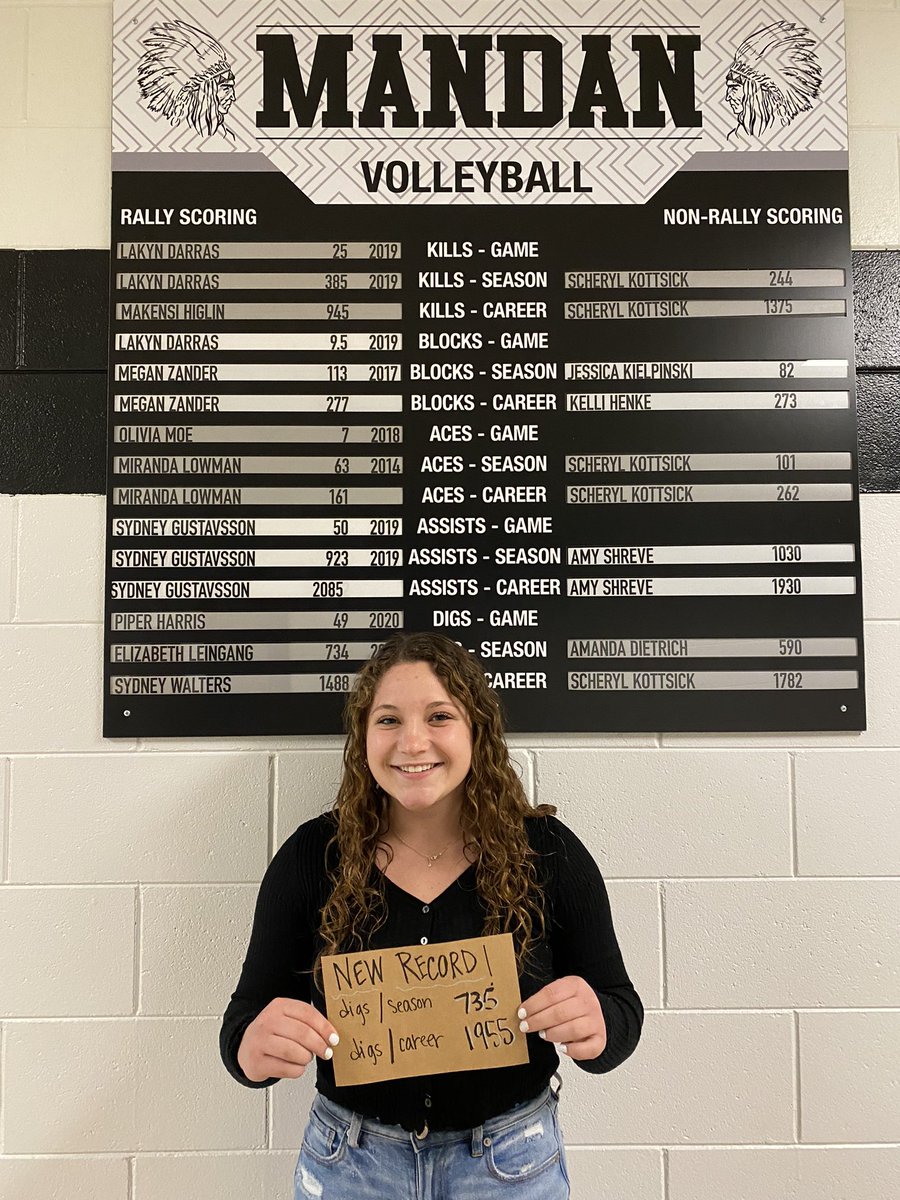 MANDAN
VOLLEYBALL
RALLY SCORING NON-RALLY SCORING
LAKYN DARRAS 25 2019 KILLS - GAME
LAKYN DARRAS 385 2019 KILLS - SEASON SCHERYL KOTTSICK 244
MAKENSI HIGLIN 945 KILLS - CAREER SCHERYL KOTTSICK 1375
LAKYN DARRAS 9.5 2019 BLOCKS - GAME
MEGAN ZANDER 113 2017 BLOCKS - SEASON JESSICA KIELPINSKI 82
MEGAN ZANDER 277 BLOCKS - CAREER KELLI HENKE 273
OLIVIA MOE 7 2018 ACES - GAME
MIRANDA LOWMAN 63 2014 ACES - SEASON SCHERYL KOTTSICK 101
MIRANDA LOWMAN 161 ACES - CAREER SCHERYL KOTTSICK 262
SYDNEY GUSTAVSSON 50 2019 ASSISTS - GAME
SYDNEY GUSTAVSSON 923 2019 ASSISTS - SEASON AMY SHREVE 1030
SYDNEY GUSTAVSSON 2085 ASSISTS - CAREER AMY SHREVE 1930
PIPER HARRIS 49 2020 DIGS - GAME
ELIZABETH LEINGANG 734 - SEASON AMANDA DIETRICH 590
SYDNEY WALTERS 1488 CAREER SCHERYL KOTTSICK 1782
NEW RECORD!
digs / season 735
digs / career 1955